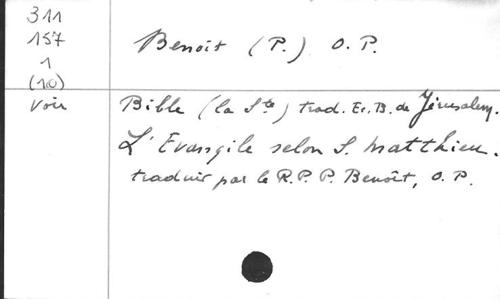 311
157
1
(10)
Benoit (P.) O.P.
voir
Bible (la Ste) trad. Ec. B. de Jérusalem.
L'Evangile selon S. Matthieu.
traduit par le R.P. P. Benoît, O.P.